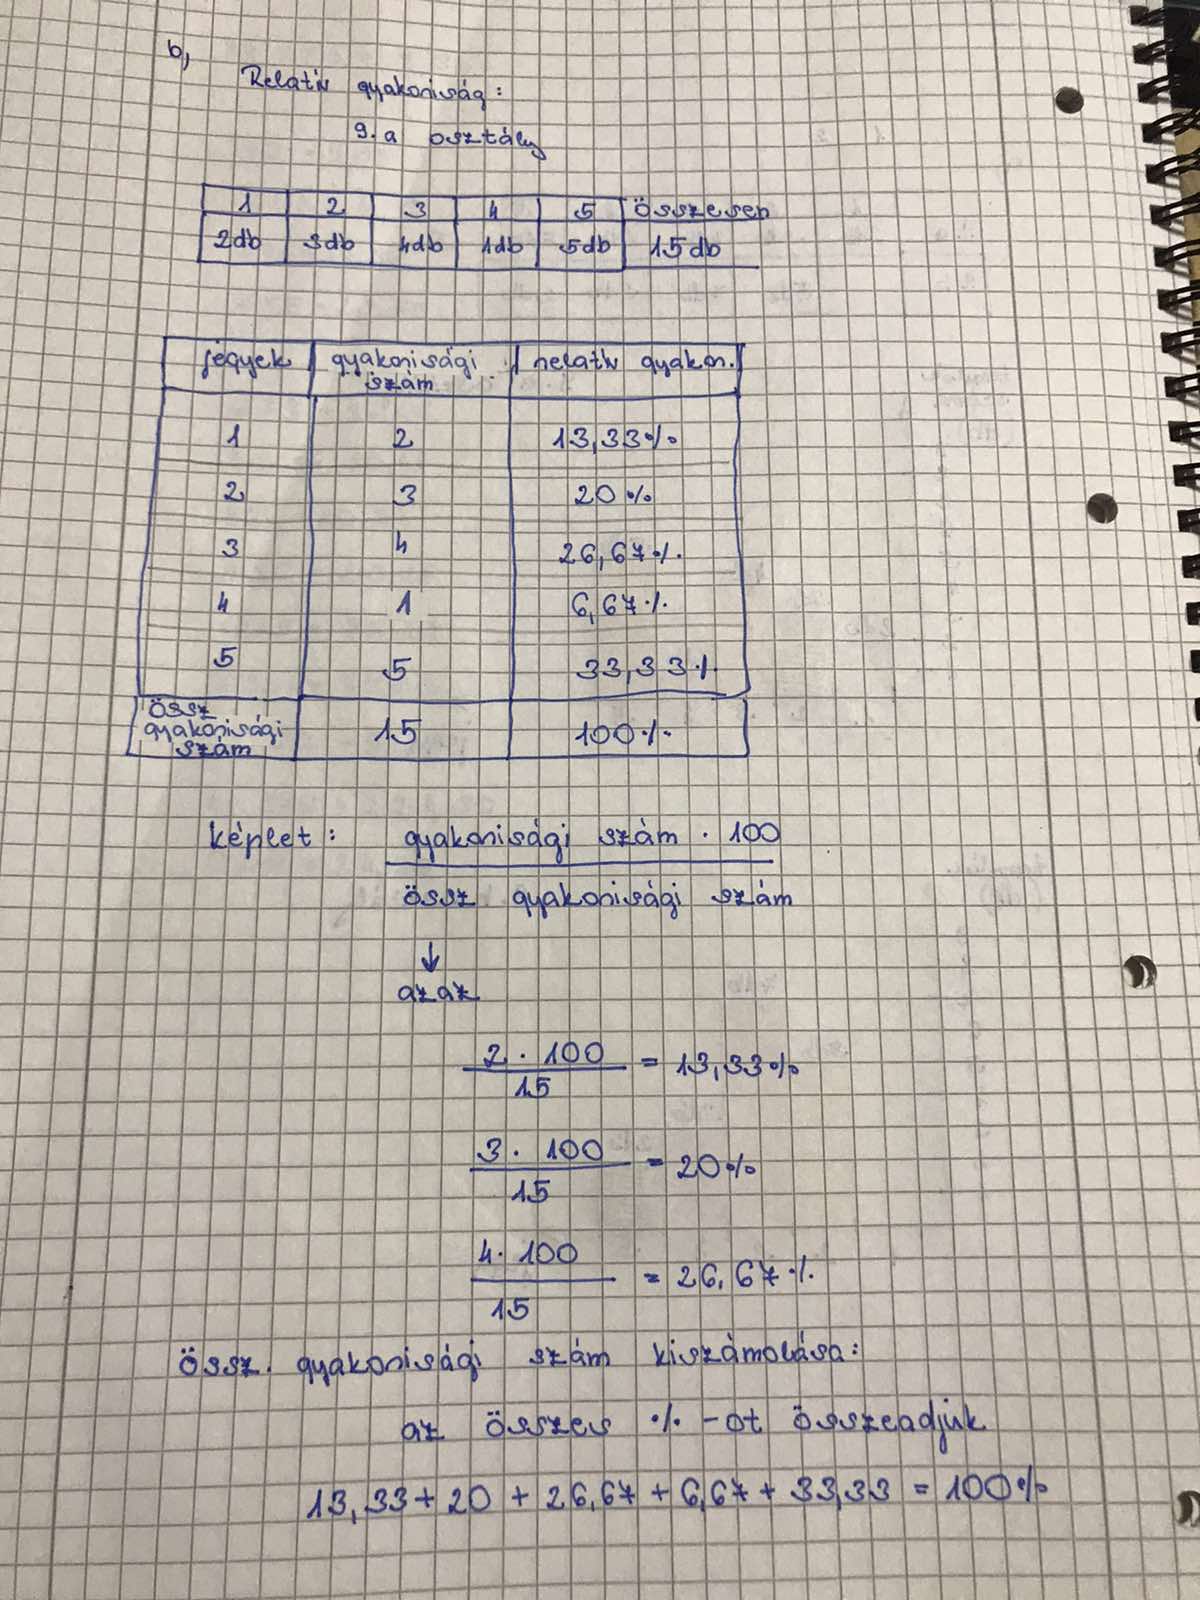 b,
Relatív gyakoriság:
9.a osztály
1 2 3 4 5 összesen
2db 3db 4db 1db 5db 15db
jegyek gyakorisági szám relatív gyakor.
1 2 13,33%
2 3 20%
3 4 26,67%
4 1 6,67%
5 5 33,33%
össz gyakorisági szám 15 100%
képlet: gyakorisági szám · 100
össz gyakorisági szám
↓
azaz
2 · 100
15
= 13,33%
3 · 100
15
= 20%
4 · 100
15
= 26,67%
össz. gyakorisági szám kiszámolása:
az összes % -ot összeadjuk
13,33 + 20 + 26,67 + 6,67 + 33,33 = 100%